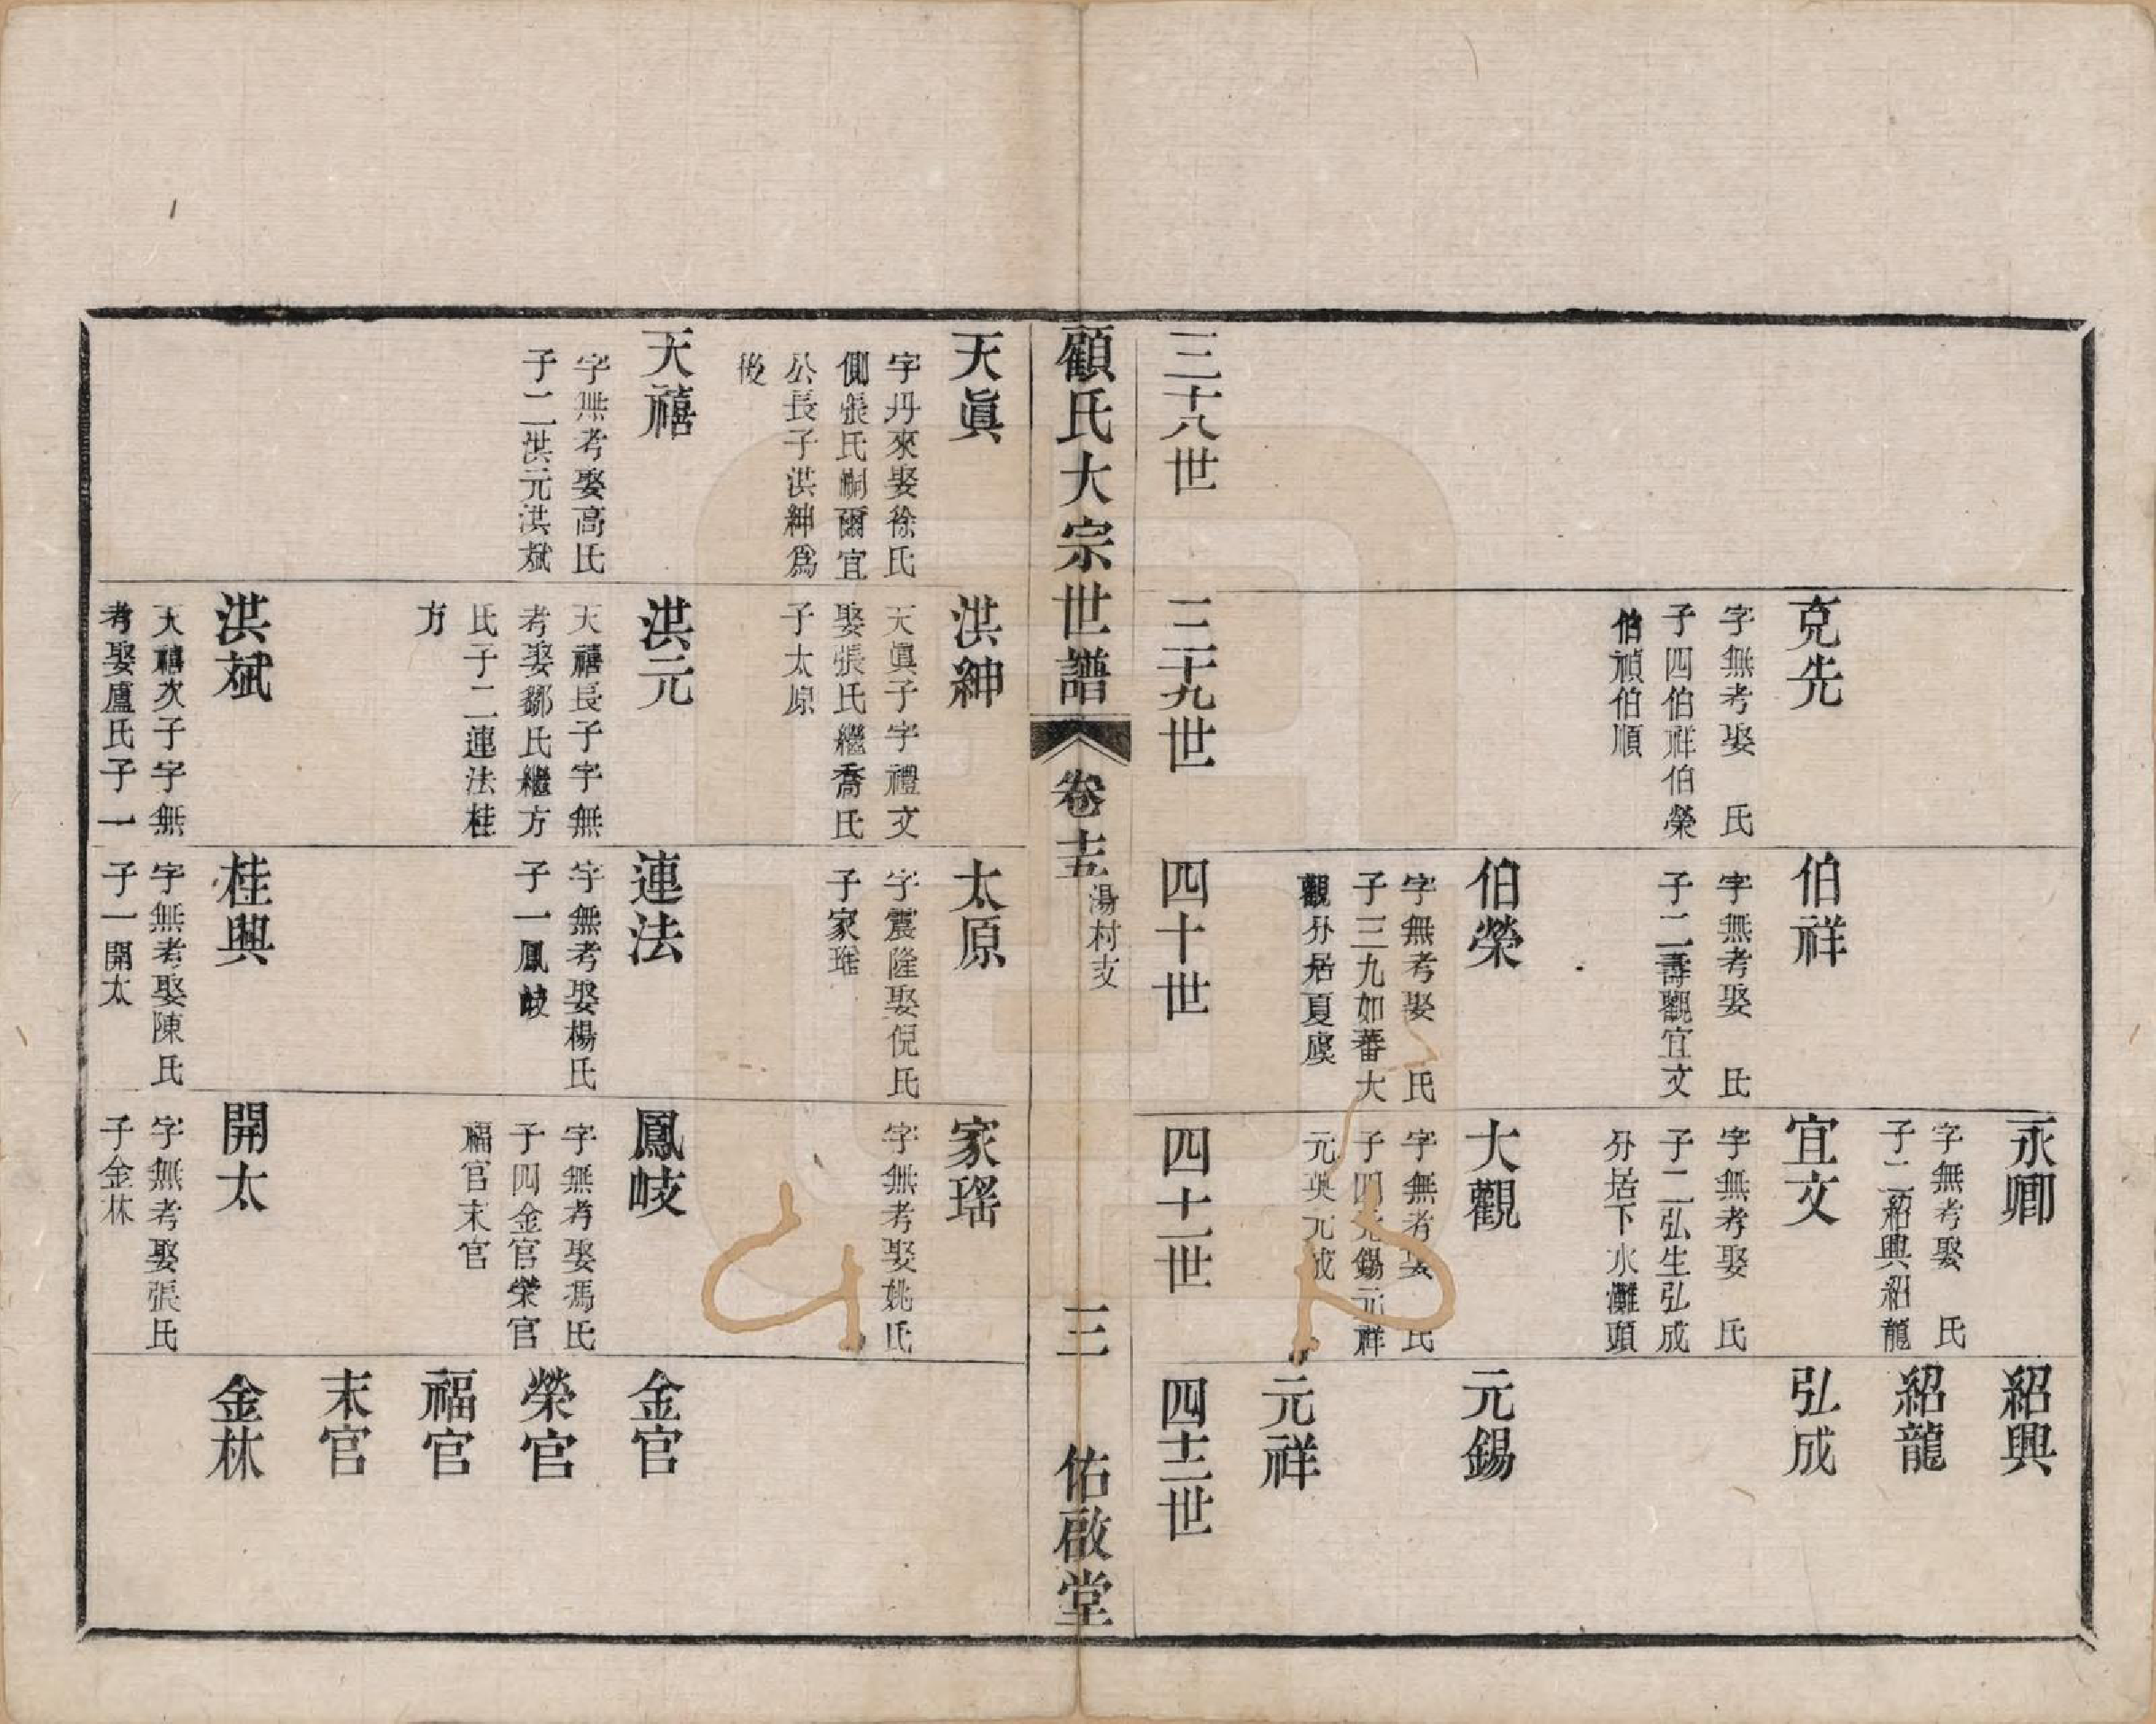 三十八世
三十九世
四十世
四十一世
四十二世
克先
字無考娶　氏
子四伯祥伯榮
伯禎伯順
伯祥
字無考娶　氏
子二壽觀宜文
伯榮
字無考娶　氏
子三九如蕃大
觀分居夏虞
永卿
字無考娶　氏
子二紹興紹龍
宜文
字無考娶　氏
子二弘生弘成
分居下水灘頭
大觀
字無考娶　氏
子四元錫元祥
元英元成
紹興
紹龍
弘成
元錫
元祥
顧氏大宗世譜
卷十五
湯村支
三
佑啟堂
天眞
字丹來娶徐氏
側張氏嗣爾宜
公長子洪紳爲
後
天禧
字無考娶高氏
子二洪元洪斌
洪紳
天眞子字禮文
娶張氏繼喬氏
子太原
洪元
天禧長子字無
考娶鄒氏繼方
氏子二連法桂
方
洪斌
天禧次子字無
考娶盧氏子一
太原
字震隆娶倪氏
子家瑤
連法
字無考娶楊氏
子一鳳岐
桂興
字無考娶陳氏
子一開太
家瑤
字無考娶姚氏
鳳岐
字無考娶馮氏
子四金官榮官
福官末官
開太
字無考娶張氏
子金林
金官
榮官
福官
末官
金林